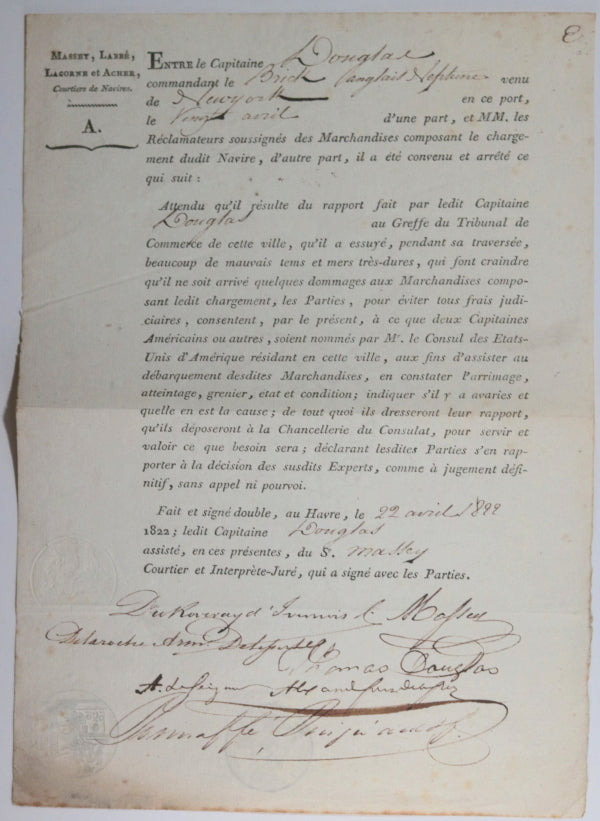 Massey, Labbé,
Lacorne et Acher,
Courtiers de Navires.
A.
Entre le Capitaine Douglas
commandant le Brick anglais Neptune venu
de Newyork en ce port,
le Vingt avril d'une part, et MM. les
Réclamateurs soussignés des Marchandises composant le charge-
ment dudit Navire, d'autre part, il a été convenu et arrêté ce
qui suit :
Attendu qu'il résulte du rapport fait par ledit Capitaine
Douglas au Greffe du Tribunal de
Commerce de cette ville, qu'il a essuyé, pendant sa traversée,
beaucoup de mauvais tems et mers très-dures, qui font craindre
qu'il ne soit arrivé quelques dommages aux Marchandises compo-
sant ledit chargement, les Parties, pour éviter tous frais judi-
ciaires, consentent, par le présent, à ce que deux Capitaines
Américains ou autres, soient nommés par Mr. le Consul des Etats-
Unis d'Amérique résidant en cette ville, aux fins d'assister au
débarquement desdites Marchandises, en constater l'arrimage,
atteintage, grenier, etat et condition; indiquer s'il y a avaries et
quelle en est la cause; de tout quoi ils dresseront leur rapport,
qu'ils déposeront à la Chancellerie du Consulat, pour servir et
valoir ce que besoin sera; déclarant lesdites Parties s'en rap-
porter à la décision des susdits Experts, comme à jugement défi-
nitif, sans appel ni pourvoi.
Fait et signé double, au Havre, le 22 avril 1822
1822; ledit Capitaine Douglas
assisté, en ces présentes, du Sr. Massey
Courtier et Interprète-Juré, qui a signé avec les Parties.
Massey
Delaroche Arm Delessert
Thomas Douglas